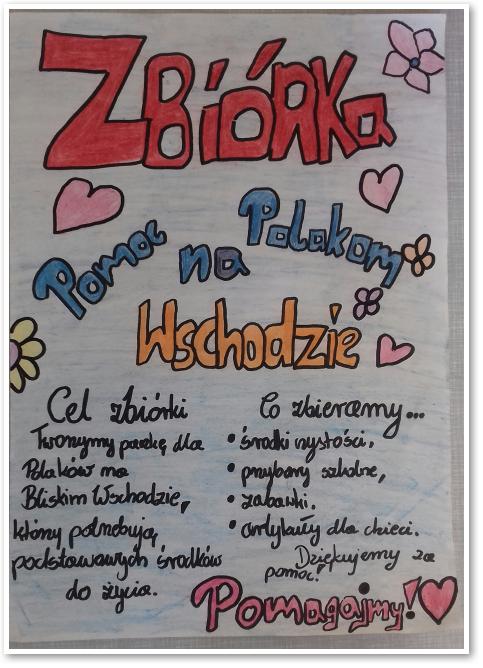 ZBIÓRKA
Pomoc Polakom
na
Wschodzie
Cel zbiórki
Tworzymy paczkę dla
Polaków na
Bliskim Wschodzie,
którzy potrzebują
podstawowych środków
do życia.
Co zbieramy...
• środki czystości,
• przybory szkolne,
• zabawki,
• artykuły dla dzieci.
Dziękujemy za
pomoc!
Pomagajmy!